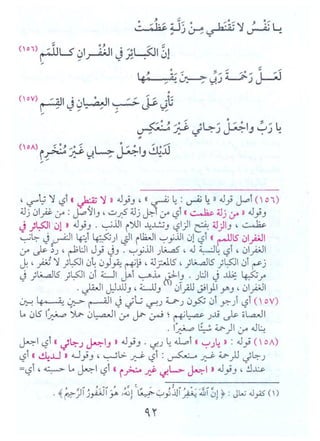 يا نَفْسُ لا تَقْنَطِي مِنْ زَلَّةٍ عَظُمَتْ
إنَّ الكَبائِرَ في الغُفْرانِ كـاللَّمَمِ (١٥٦)
لَعَلَّ رَحْمَةَ رَبِّي حِـيـنَ يَقْسِـمُها
تَأْتِي عَلَى حَسَبِ العِصْيانِ في القِسَمِ (١٥٧)
يا رَبِّ واجْعَلْ رَجائِي غَيْرَ مُنْعَكِسٍ
لَدَيْكَ وَاجْعَلْ حِسابِي غَيْرَ مُنْخَرِمِ (١٥٨)
(١٥٦) أصل قوله « يا نفس : يا نفسي » ، وقوله « لا تقنطي » أي لا تيأسي ،
وقوله « من زلة عظمت » أي من أجل زلة كبرت ، والأصل : من غفران زلة
عظمت ، والزلة بفتح الزاي وتشديد اللام الذنب . وقوله « إن الكبائر في
الغفران كاللمم » أي إن الذنوب العظام التي ارتكبتها أيتها النفس في جانب
الغفران ، أي بالنسبة له ، كصغار الذنوب . وفي قول الناظم ، رد على من
زعم أن الكبائر كالصغائر ، كالمعتزلة ، فإنهم يقولون بأن الكبائر لا تُغفر ، بل
مرتكبها يخلد في النار . والحق مذهب أهل السنة أن الكبائر كالصغائر في
الغفران ، وهو الموافق للقرآن (١) وللسنة ، وللدليل العقلي .
(١٥٧) أي أرجو أن تكون رحمة ربي تـأتي في القسم حين يقسمها بين
العصاة على قدر عصيانهم ؛ فمن حمل من العصيان حملًا صغيرًا كان ما
يناله من الرحمة شيئًا صغيرًا .
(١٥٨) قوله : « يارب » أصله يا ربي . وقوله « واجعل رجائي » أي اجعل
رجائي للرحمة غير منعكس : أي غير خائب ، وقولـه « لـديك » أي
عندك ، وقوله « اجعل حسابي غير منخرم » أي اجعل ما حسبته ، أي=
(١) كقوله تعالى : ﴿ إِنَّ اللَّهَ يَغْفِرُ الذُّنُوبَ جَمِيعًا إِنَّهُ هُوَ الْغَفُورُ الرَّحِيمُ ﴾ .
٩٢